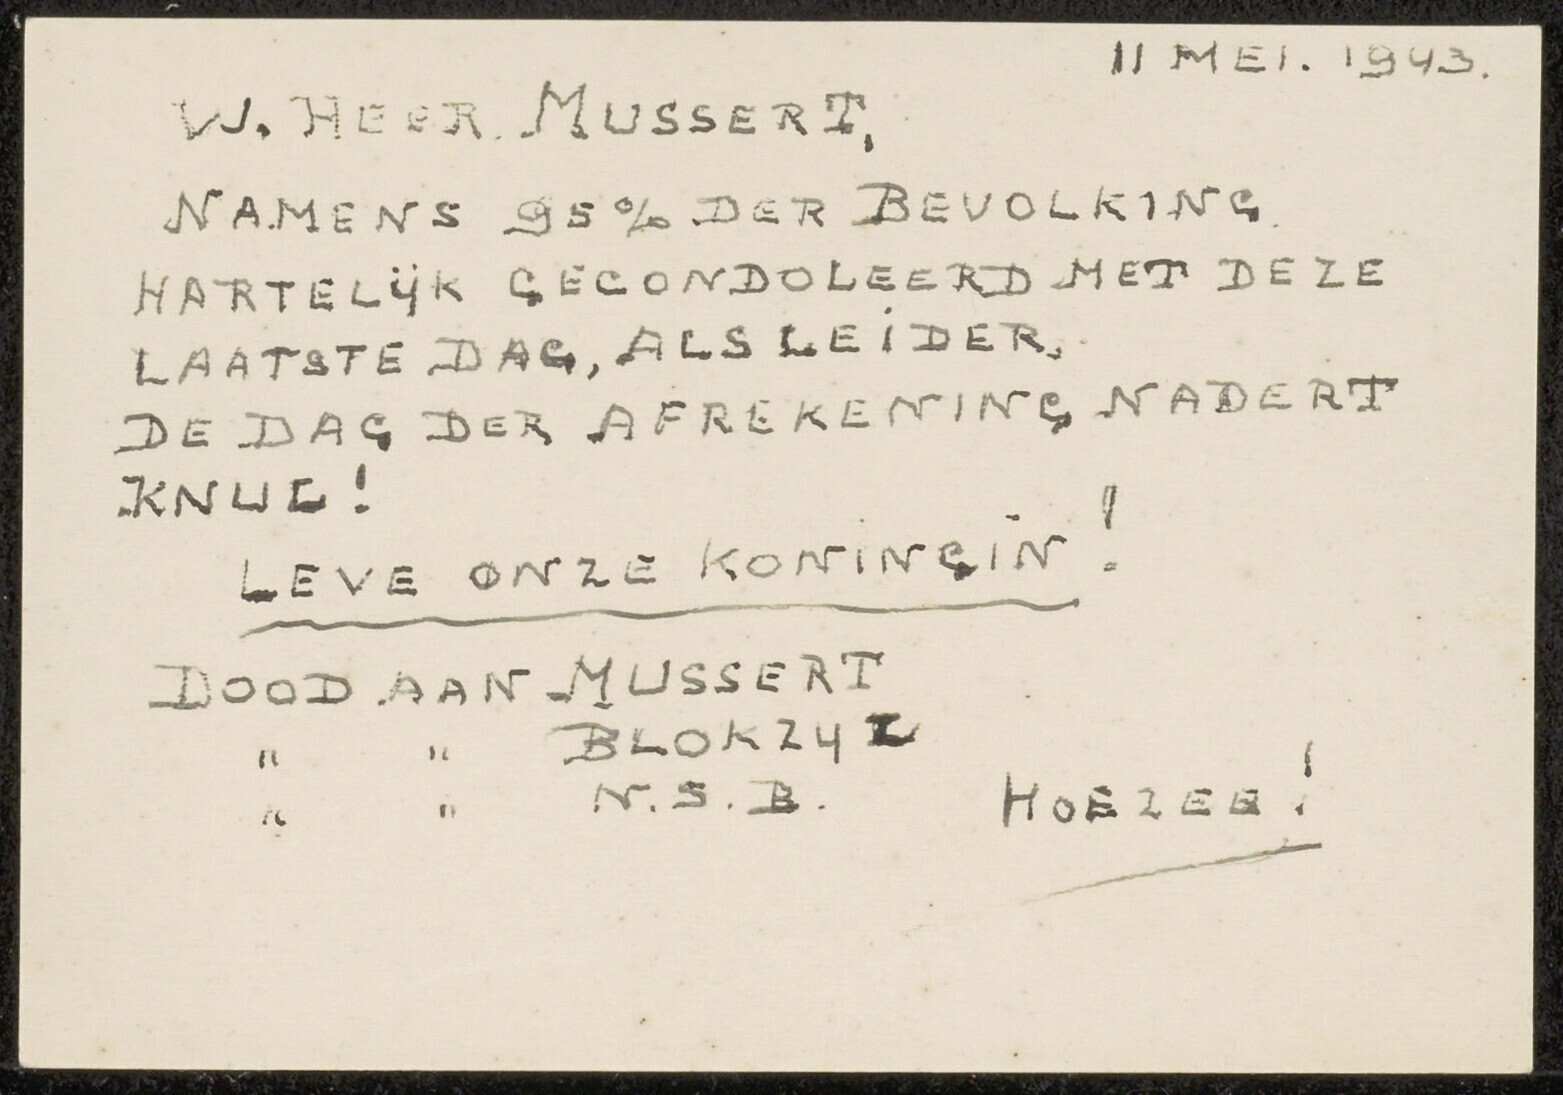 11 MEI. 1943.
W. HEER MUSSERT,
NAMENS 95% DER BEVOLKING
HARTELIJK GECONDOLEERD MET DEZE
LAATSTE DAG, ALS LEIDER.
DE DAG DER AFREKENING NADERT
KNUL!
LEVE ONZE KONINGIN!
DOOD AAN MUSSERT
" " BLOKZYL
" " N.S.B.
HOEZEE!